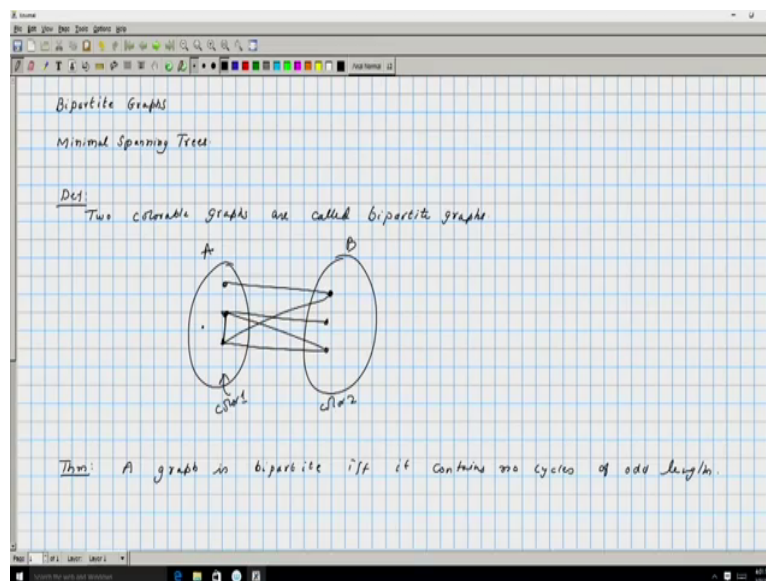 File Edit View Page Tools Options Help
Bipartite Graphs
Minimal Spanning Trees.
Def:
Two colorable graphs are called bipartite graphs.
A B
color1 color2
Thm: A graph is bipartite iff it contains no cycles of odd length.
Page 1 of 1 Layer: Layer 1
Search the web and Windows